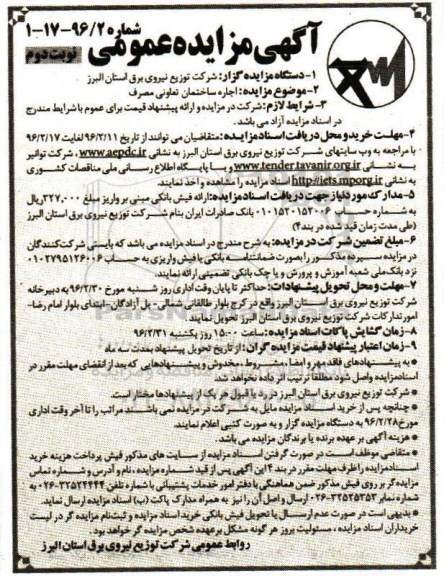 آگهی مزایده عمومی
شماره ۹۶/۲-۱۷-۱
نوبت دوم
۱- دستگاه مزایده گزار: شرکت توزیع نیروی برق استان البرز
۲- موضوع مزایده: اجاره ساختمان تعاونی مصرف
۳- شرایط لازم: شرکت در مزایده و ارائه پیشنهاد قیمت برای عموم با شرایط مندرج
در اسناد مزایده آزاد می باشد.
۴- مهلت خرید و محل دریافت اسناد مزایده: متقاضیان می توانند از تاریخ ۹۶/۲/۱۱ لغایت ۹۶/۲/۱۷
با مراجعه به وب سایتهای شرکت توزیع نیروی برق استان البرز به نشانی www.aepdc.ir ، شرکت توانیر
به نشانی www.tender.tavanir.org.ir و یا پایگاه اطلاع رسانی ملی مناقصات کشوری
به نشانی http://iets.mporg.ir اسناد مزایده را مشاهده و اخذ نمایند.
۵- مدارک مورد نیاز جهت دریافت اسناد مزایده: ارائه فیش بانکی مبنی بر واریز مبلغ ۳۲۷,۰۰۰ ریال
به شماره حساب ۰۱۰۱۵۲۰۱۵۲۰۰۶ بانک صادرات ایران بنام شرکت توزیع نیروی برق استان البرز
(طی مدت زمان قید شده در بند ۴)
۶- مبلغ تضمین شرکت در مزایده: به شرح مندرج در اسناد مزایده می باشد که بایستی شرکت کنندگان
در مزایده سپرده مذکور را بصورت ضمانتنامه بانکی یا فیش واریزی به حساب ۰۱۰۲۷۹۵۱۲۶۰۰۶
نزد بانک ملی شعبه آموزش و پرورش و یا چک بانکی تضمینی ارائه نمایند.
۷- مهلت و محل تحویل پیشنهادات: حداکثر تا پایان وقت اداری روز شنبه مورخ ۹۶/۲/۳۰ به دبیرخانه
شرکت توزیع نیروی برق استان البرز واقع در کرج بلوار طالقانی شمالی- پل آزادگان- ابتدای بلوار امام رضا-
امور تدارکات شرکت توزیع نیروی برق استان البرز تحویل نمایند.
۸- زمان گشایش پاکات اسناد مزایده: ساعت ۱۵:۰۰ روز یکشنبه ۹۶/۲/۳۱
۹- زمان اعتبار پیشنهاد قیمت مزایده گران: از تاریخ تحویل پیشنهاد بمدت سه ماه
* به پیشنهادهای فاقد مهر و امضا، مشروط، مخدوش و پیشنهادهایی که بعد از انقضای مهلت مقرر در
اسناد مزایده واصل شود مطلقا ترتیب اثر داده نخواهد شد.
* شرکت توزیع نیروی برق استان البرز در رد یا قبول هر یک از پیشنهادها مختار است.
* چنانچه پس از خرید اسناد مزایده مایل به شرکت در مزایده نمی باشند مراتب را تا آخر وقت اداری
مورخ ۹۶/۲/۲۸ به دستگاه مزایده گزار و به صورت کتبی اعلام نمایند.
* هزینه آگهی بر عهده برنده یا برندگان مزایده می باشد.
* متقاضی موظف است در صورت گرفتن اسناد مزایده از سایت های مذکور فیش پرداخت هزینه خرید
اسناد مزایده را ظرف مهلت مقرر در بند ۴ این آگهی پس از قید شماره مزایده، نام و آدرس و شماره تماس
مزایده گر بر روی فیش مذکور ضمن هماهنگی با دفتر امور خدمات پشتیبانی با شماره تلفن ۳۲۵۲۴۴۴۴-۰۲۶ به
شماره نمابر ۳۲۵۲۵۲۵۳-۰۲۶ ارسال و اصل آن را نیز به همراه مدارک پاکت (ب) اسناد مزایده ارسال نماید.
* بدیهی است در صورت عدم ارسال یا تحویل فیش بانکی خرید اسناد مزایده و ثبت نام مزایده گر در لیست
خریداران اسناد مزایده ، مسئولیت بروز هر گونه مشکل بر عهده شخص مزایده گر خواهد بود.
روابط عمومی شرکت توزیع نیروی برق استان البرز